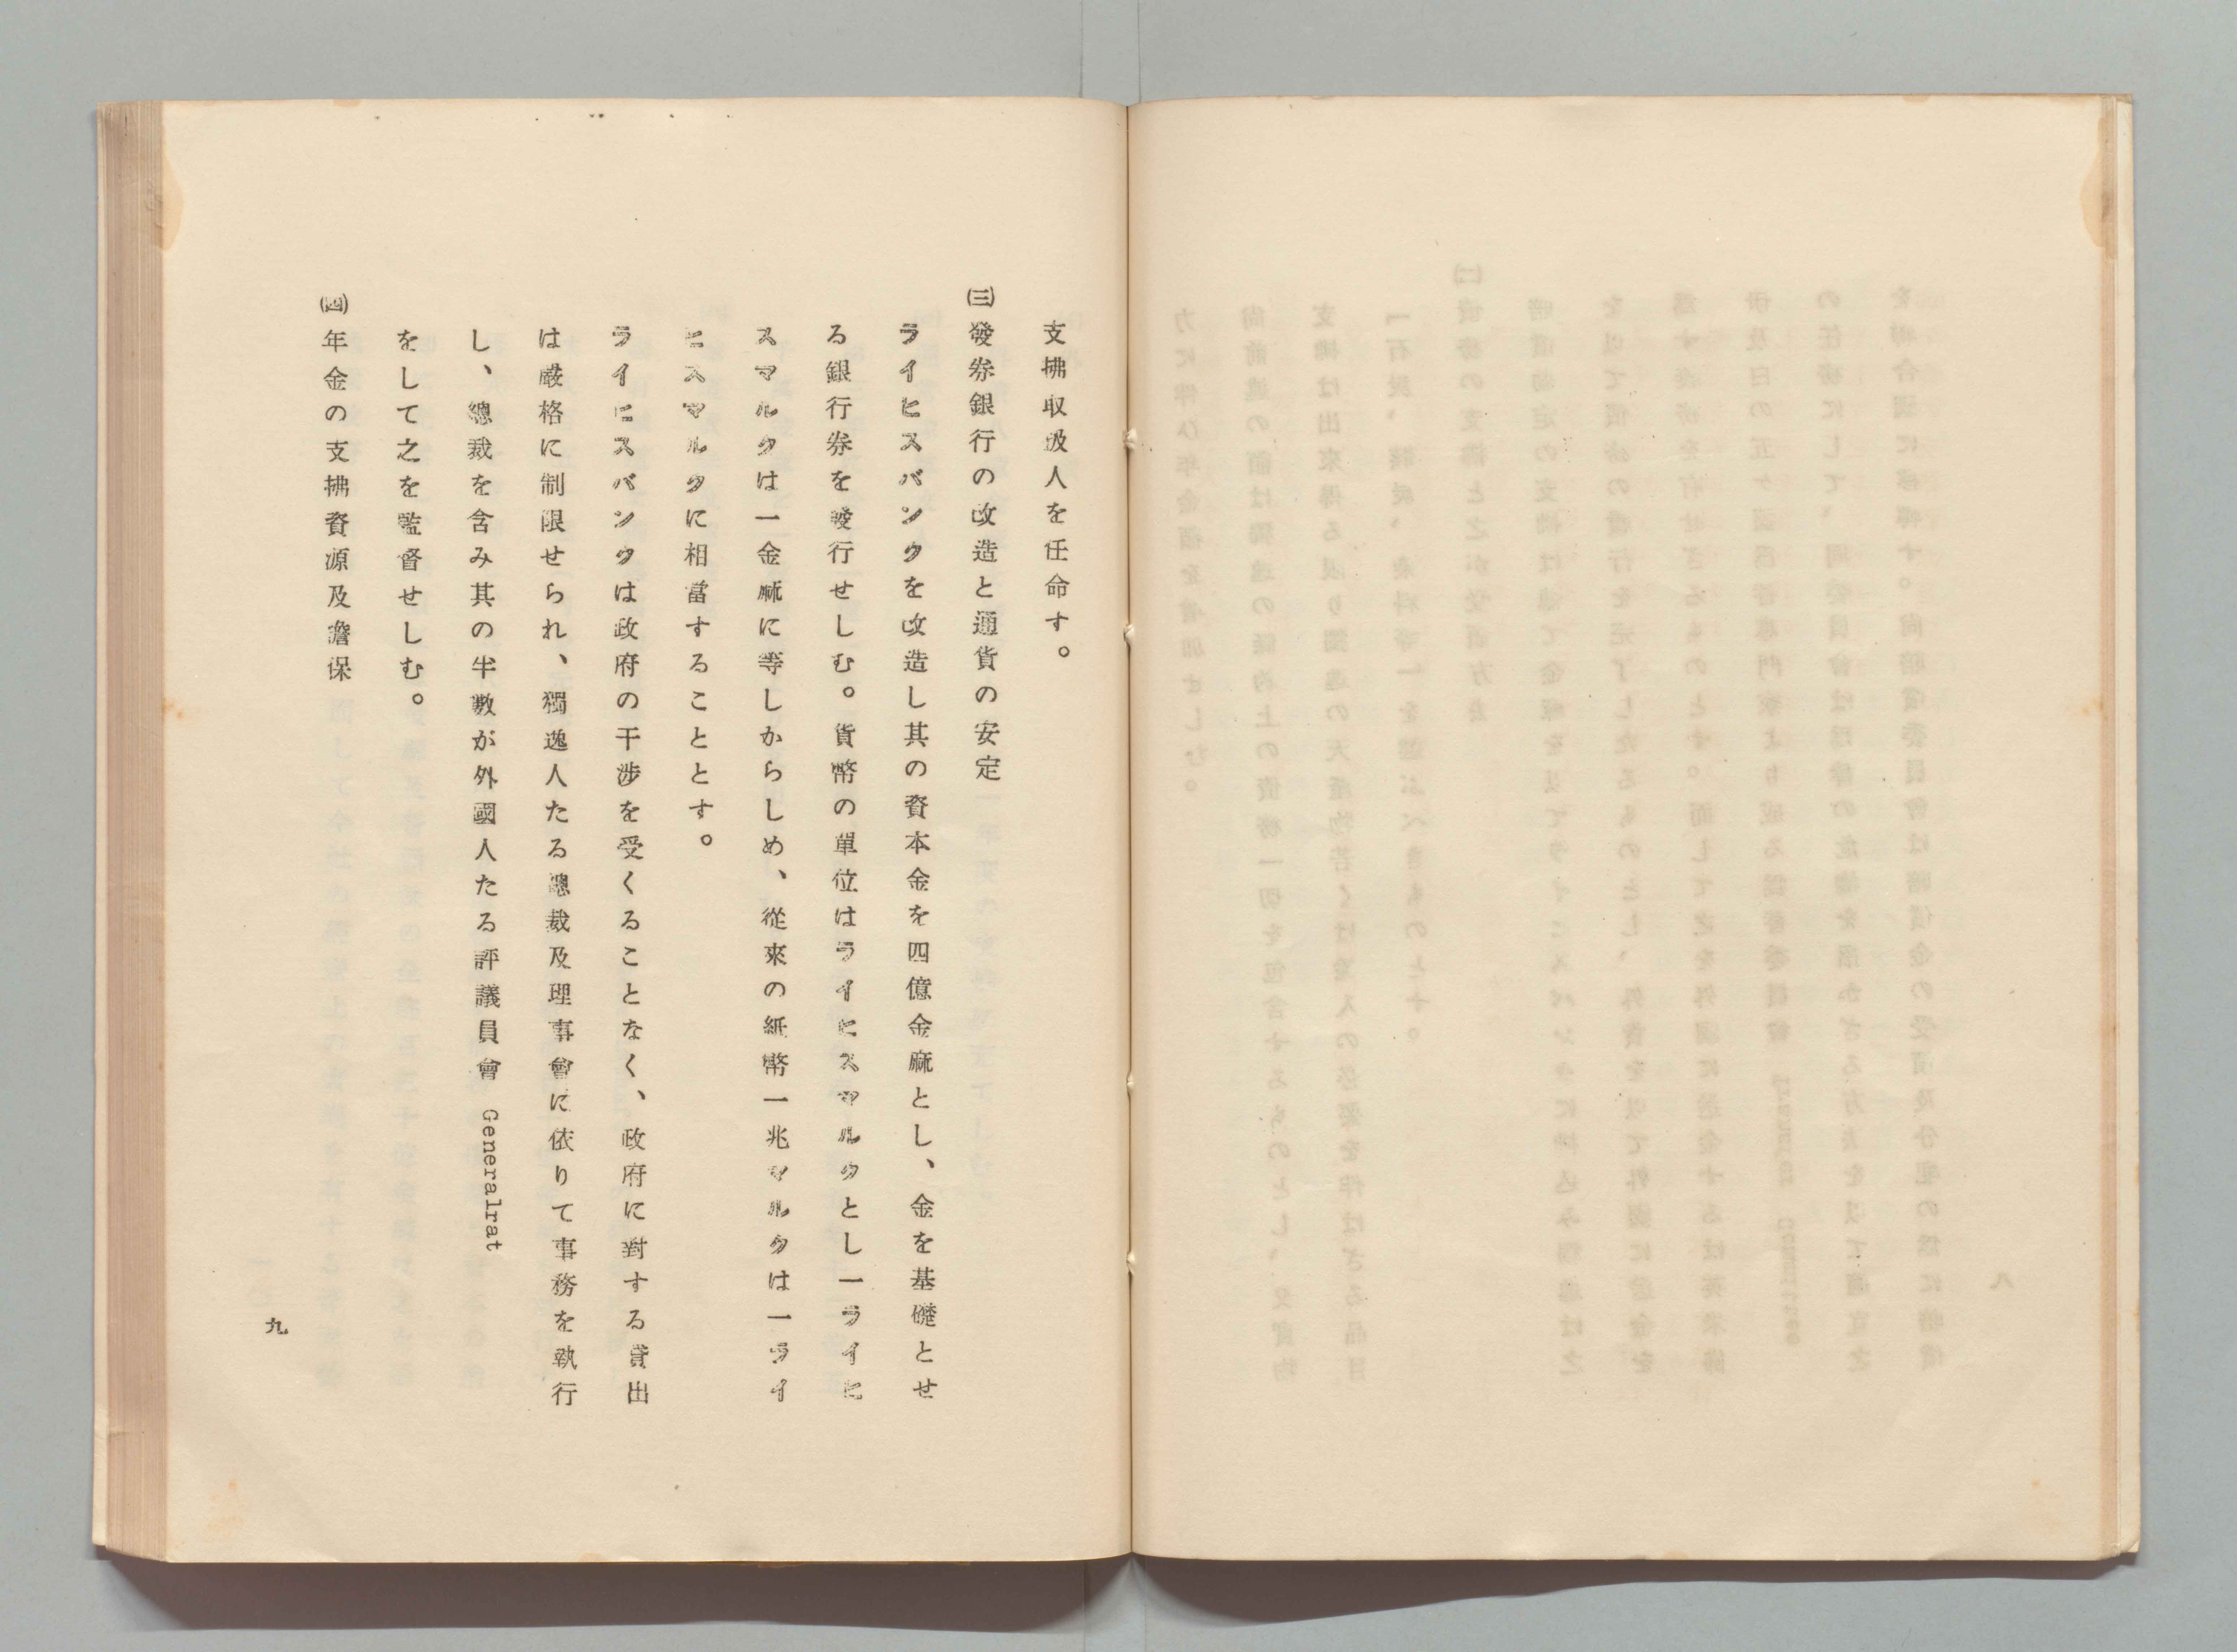 支拂取扱人を任命す。
㈢發券銀行の改造と通貨の安定
ライヒスバンクを改造し其の資本金を四億金麻とし、金を基礎とせ
る銀行券を發行せしむ。貨幣の單位はライヒスマルクとし一ライヒ
スマルクは一金麻に等しからしめ、從來の紙幣一兆マルクは一ライ
ヒスマルクに相當することとす。
ライヒスバンクは政府の干渉を受くることなく、政府に對する貸出
は嚴格に制限せられ、獨逸人たる總裁及理事會に依りて事務を執行
し、總裁を含み其の半數が外國人たる評議員會 Generalrat
をして之を監督せしむ。
㈣年金の支拂資源及擔保
九